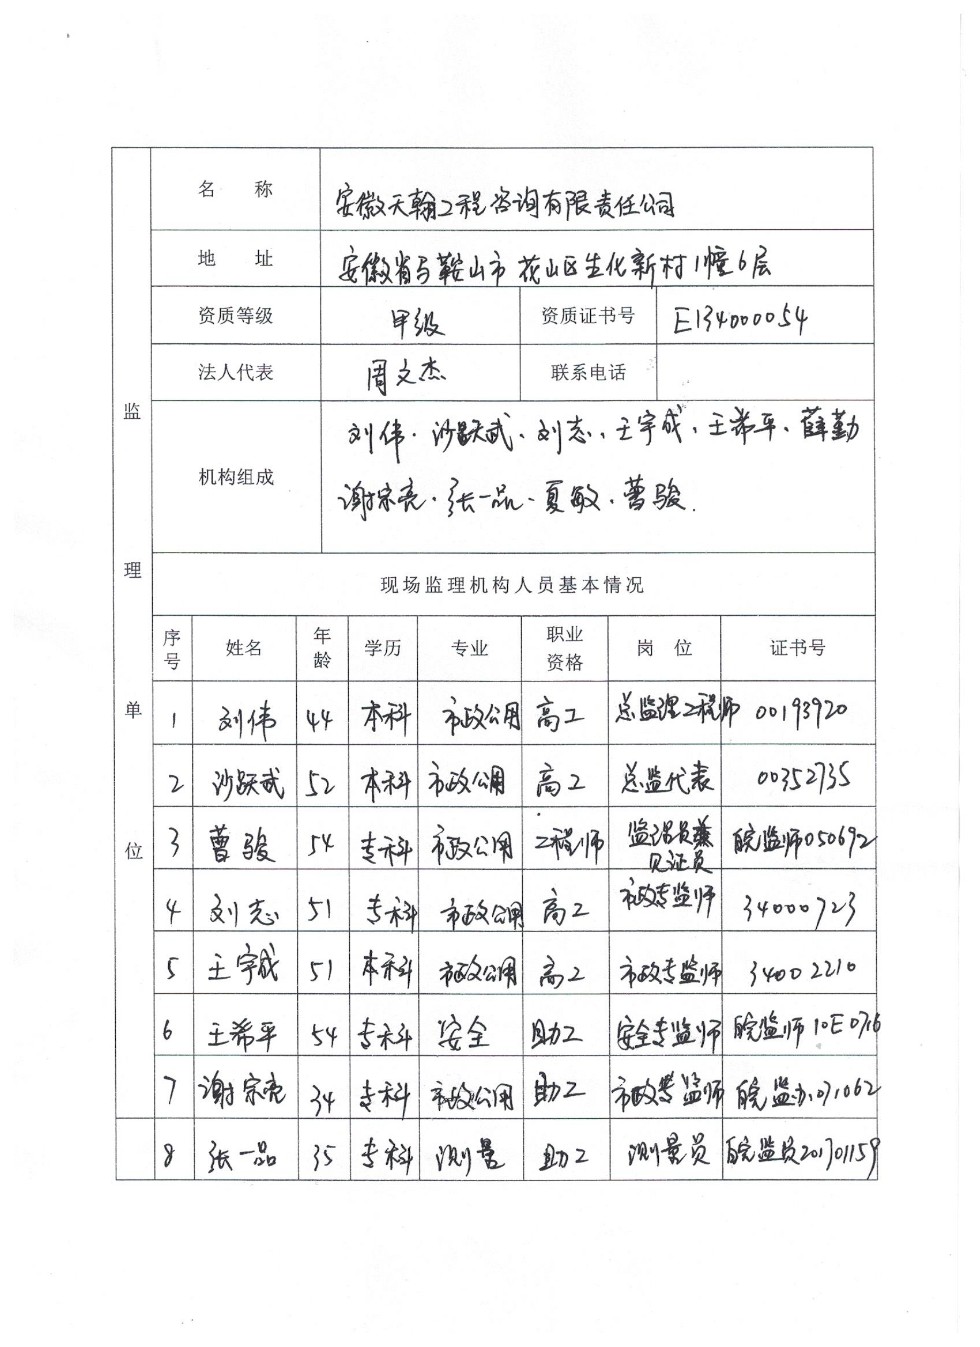 监理单位
名 称 安徽天翰工程咨询有限责任公司
地 址 安徽省马鞍山市花山区生化新村1幢6层
资质等级 甲级 资质证书号 E134000054
法人代表 周文杰 联系电话
机构组成 刘伟、沙跃武、刘志、王宇成、王希平、薛勤
谢宗亮、张一品、夏敏、曹骏.
现场监理机构人员基本情况
序号 姓名 年龄 学历 专业 职业资格 岗 位 证书号
1 刘伟 44 本科 市政公用 高工 总监理工程师 00193920
2 沙跃武 52 本科 市政公用 高工 总监代表 00352735
3 曹骏 54 专科 市政公用 工程师 监理员兼见证员 皖监师050692
4 刘志 51 专科 市政公用 高工 市政专监师 34000723
5 王宇成 51 本科 市政公用 高工 市政专监师 34002210
6 王希平 54 专科 安全 助工 安全专监师 皖监师10E0716
7 谢宗亮 34 专科 市政公用 助工 市政专监师 皖监办071062
8 张一品 35 专科 测量 助工 测量员 皖监员201701159